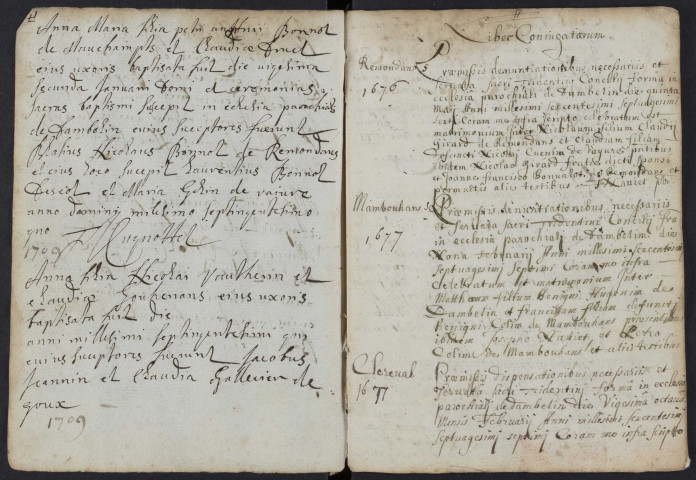 Anna Maria filia petri anthonii Bonnot
de Mauchamps et Claudiæ Druet
eius uxoris baptisata fuit die vigesima
secunda Januarii domi et ceremonias
sacras baptismi suscepit in ecclesia parochiali
de Dambelin cuius susceptores fuerunt
Nicolaus Bonnot de Remondans
et eius loco suscepit Laurentius Bonnot
et Maria de vaivre
anno domini millesimo septingentesimo
1709
Anna filia Nicolai Vautherin et
Claudiæ eius uxoris
baptisata fuit die
anni millesimi septingentesimi
cuius susceptores fuerunt Jacobus
Jeannin et Claudia de
goux
1709
Liber Coniugatorum
Remondans
1676
Præmissis denuntiationibus necessariis et
servata sacri Tridentini Concilii forma in
ecclesia parochiali de Dambelin die quinta
Maii Anni millesimi sexcentesimi septuagesimi
sexti Coram me infra scripto celebratum est
matrimonium inter Nicolaum filium Claudii
Girard de Remondans et Claudiam filiam
defuncti Nicolai Cuenin de
ibidem Nicolao Girard fratre dicti sponsi
et Joanne Francisco Bonnot de Remondans et
pluribus aliis testibus
Mambouhans
1677
Præmissis denuntiationibus necessariis
et servata sacri Tridentini Concilii forma
in ecclesia parochiali de Dambelin die
Nona Februarii Anni millesimi sexcentesimi
septuagesimi septimi Coram me infra
celebratum est matrimonium Inter
Matthæum filium Benigni Hugonin de
Dambelin et franciscam filiam defuncti
Benigni Colin de Mambouhans præsentibus
ibidem Josepho et Petro
Colin de Mambouhans et aliis testibus
Clereval
1677
Præmissis dispensationibus necessariis et
servata sacri Tridentini forma in ecclesia
parochiali de dambelin die Vigesima octava
Mensis Februarii Anni millesimi sexcentesimi
septuagesimi septimi Coram me infra scripto